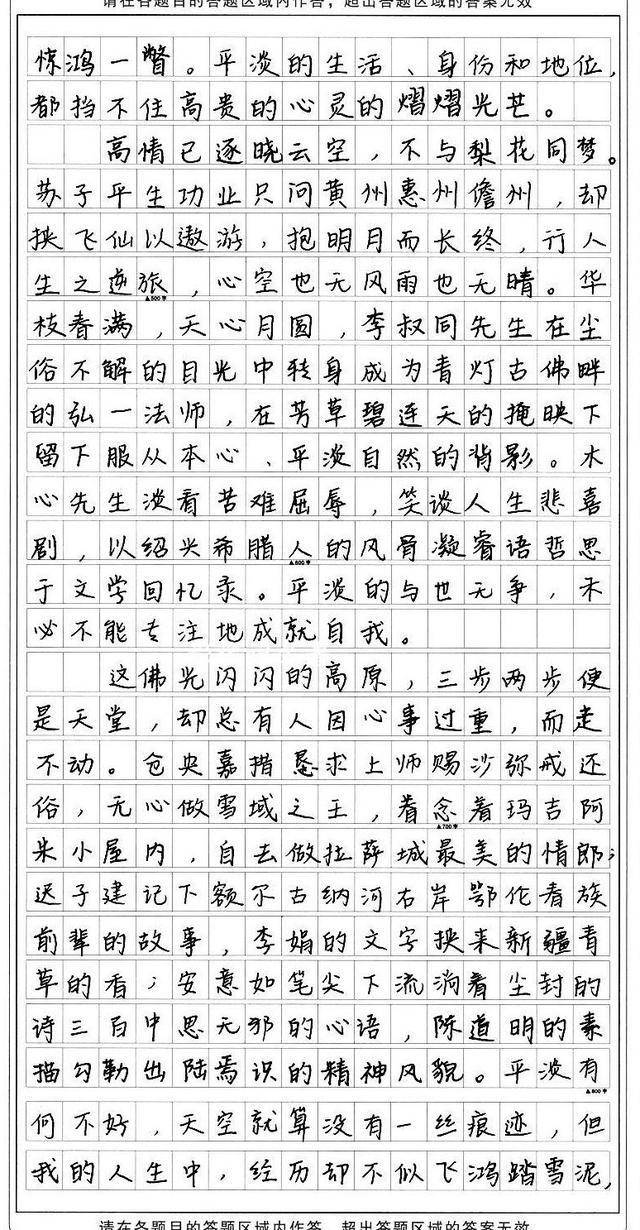 请在各题目的答题区域内作答，超出答题区域的答案无效
惊鸿一瞥。平淡的生活、身份和地位，
都挡不住高贵的心灵的熠熠光芒。
高情已逐晓云空，不与梨花同梦。
苏子平生功业只问黄州惠州儋州，却
挟飞仙以遨游，抱明月而长终，行人
生之逆旅，心空也无风雨也无晴。华
▲500字
枝春满，天心月圆，李叔同先生在尘
俗不解的目光中转身成为青灯古佛畔
的弘一法师，在芳草碧连天的掩映下
留下服从本心、平淡自然的背影。木
心先生淡看苦难屈辱，笑谈人生悲喜
剧，以绍兴希腊人的风骨凝睿语哲思
▲600字
于文学回忆录。平淡的与世无争，未
必不能专注地成就自我。
这佛光闪闪的高原，三步两步便
是天堂，却总有人因心事过重，而走
不动。仓央嘉措恳求上师赐沙弥戒还
俗，无心做雪域之王，着念着玛吉阿
▲700字
米小屋内，自去做拉萨城最美的情郎；
迟子建记下额尔古纳河右岸鄂伦春族
前辈的故事，李娟的文字挟来新疆青
草的香；安意如笔尖下流淌着尘封的
诗三百中思无邪的心语，陈道明的素
描勾勒出陆焉识的精神风貌。平淡有
▲800字
何不好，天空就算没有一丝痕迹，但
我的人生中，经历却不似飞鸿踏雪泥，
请在各题目的答题区域内作答，超出答题区域的答案无效